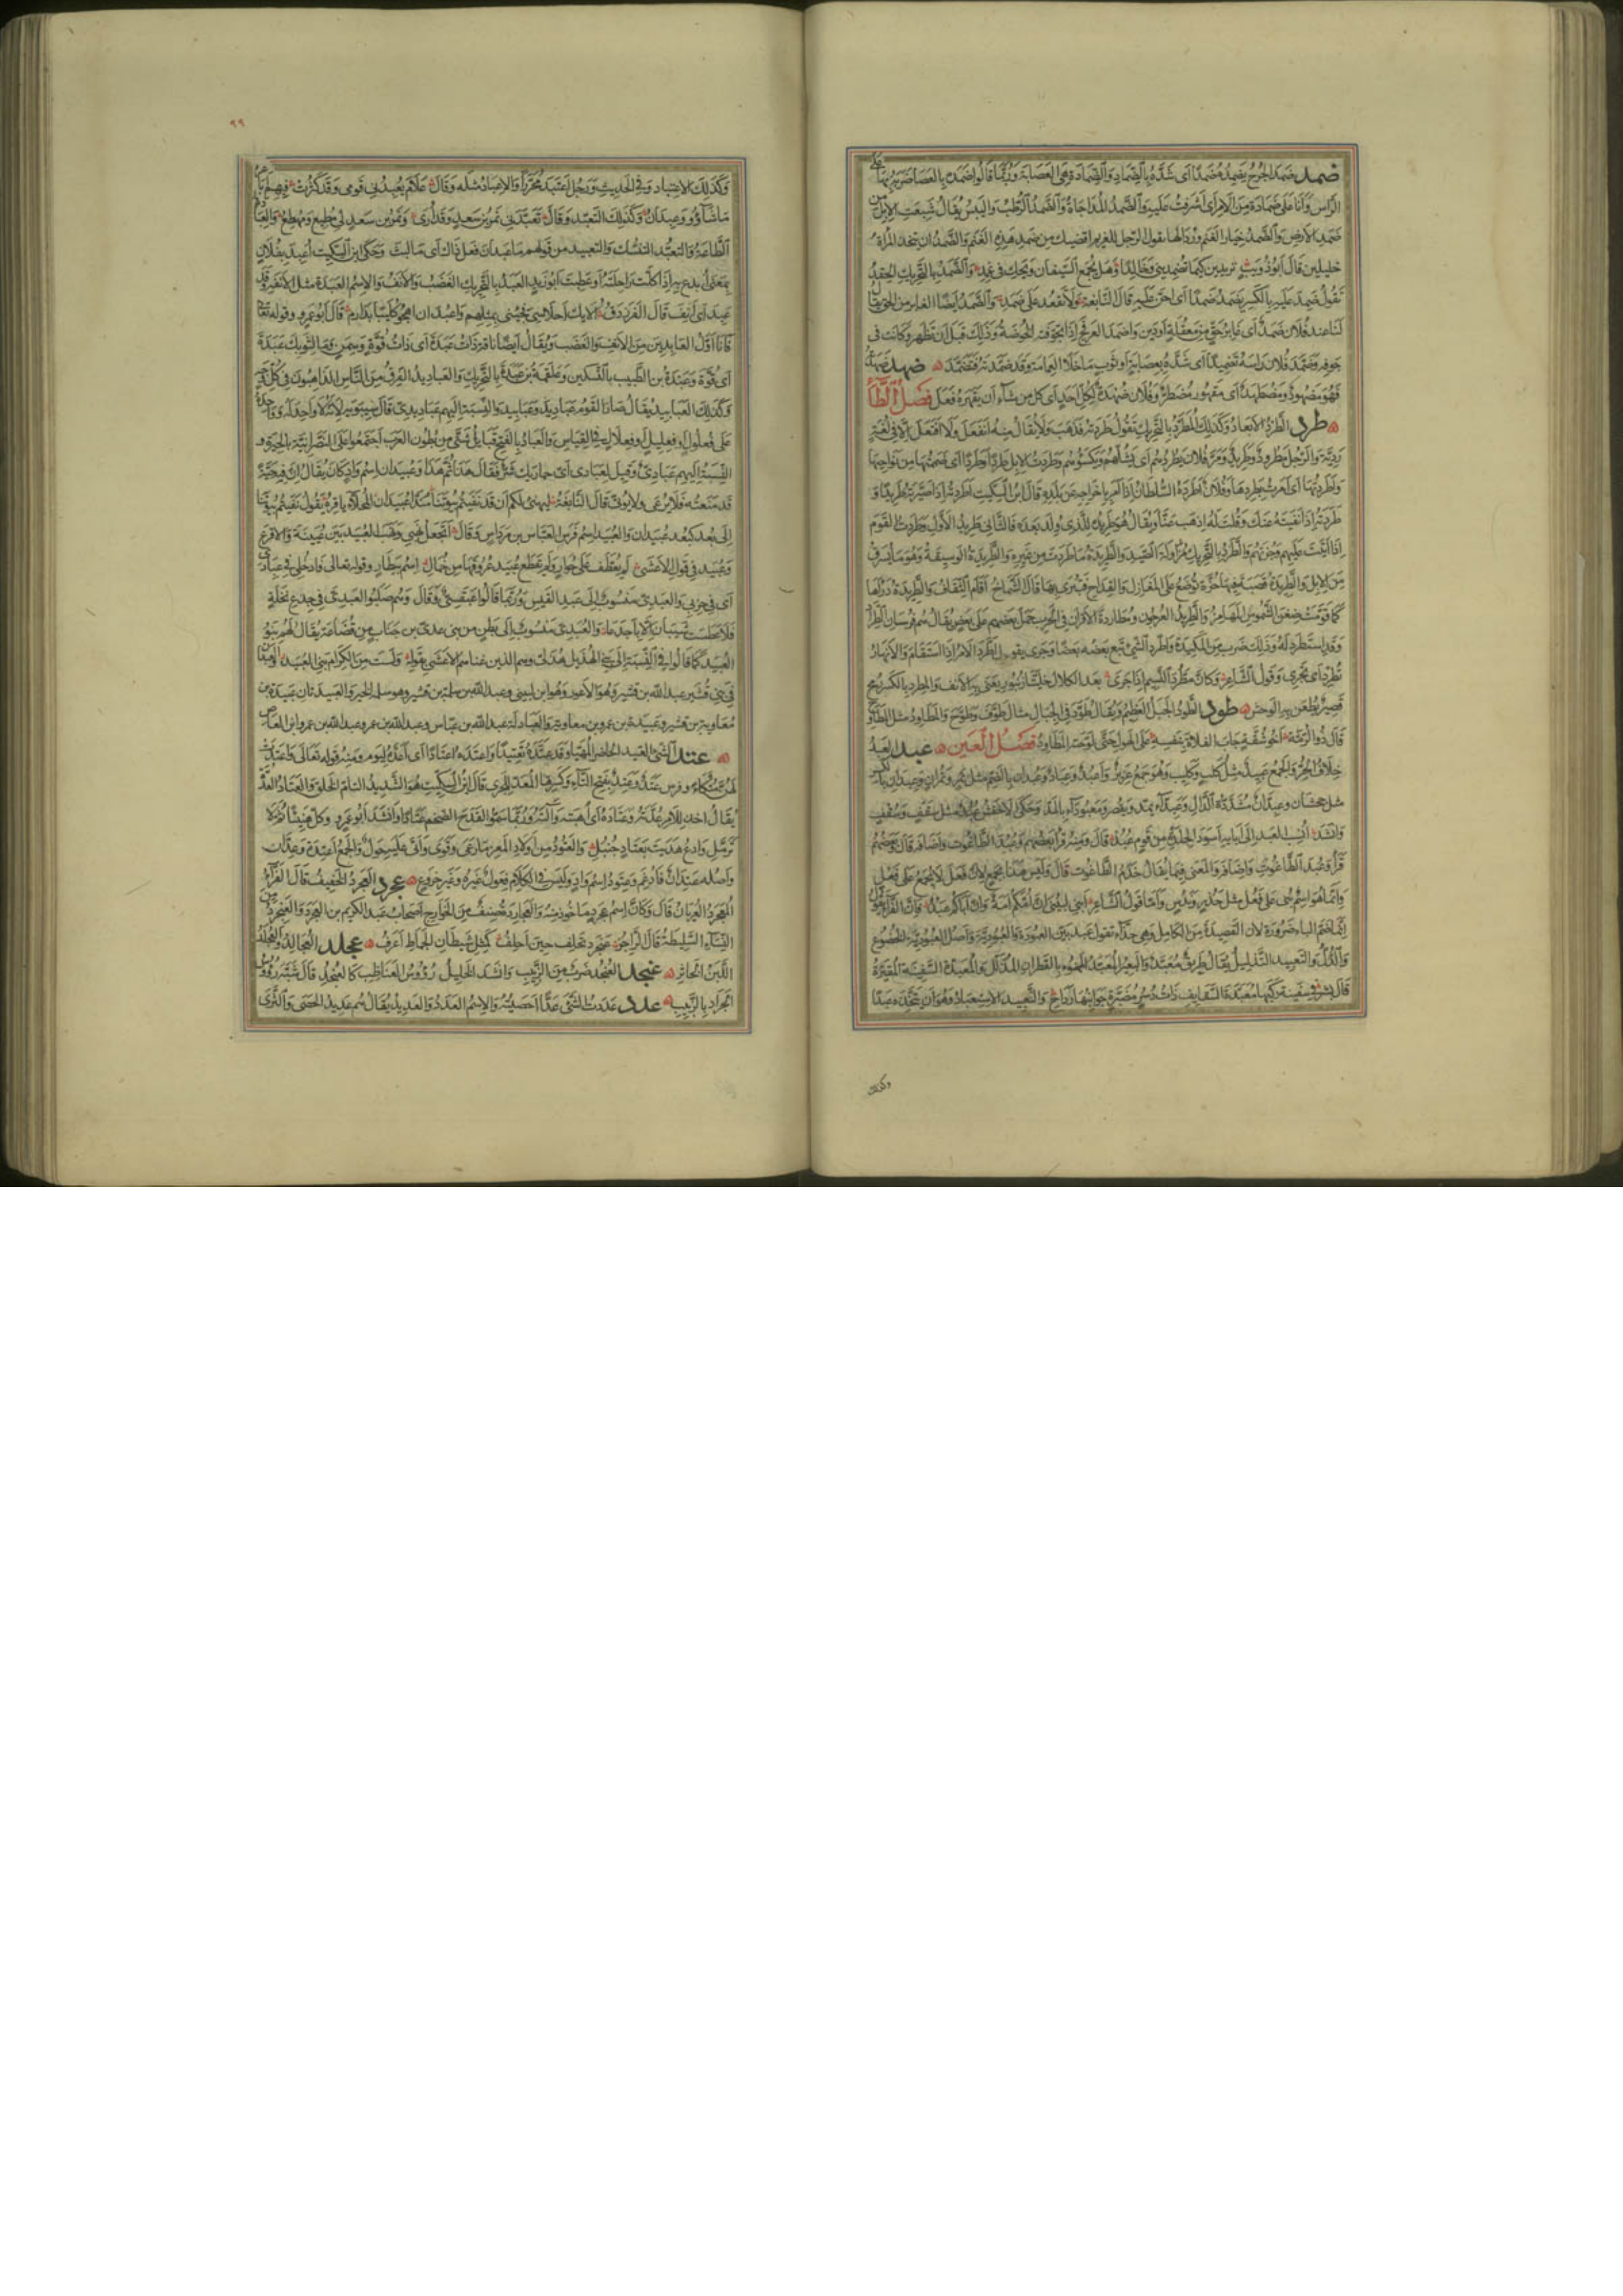 ضمد ضَمَدَ الجُرْحَ يَضْمِدُهُ ضَمْدًا اى شَدَّهُ بالضِّمَادِ والضِّمَادَةِ وهى العصابة وَرُبَّمَا قالُوا ضَمَدَهُ بالعَصَا ضَرَبَهُ بها على
الرّاس وَأَنَا على ضِمَادَة من الامر اى أَشْرَفْتُ عليه والضَّمْدُ المُدَاجَاةُ والضَّمْدُ الرَّطْبُ واليَبْسُ يُقَالُ شَبِعَتِ الابل من
ضَمْدِ الارض والضَّمْدُ خِيَار الغَنَم وَرُذَالها يقول الرّجل للغريم اقضيك من ضَمْدِ هذه الغَنَم والضَّمْدُ ان تتخذ المرأة
خليلين قَالَ ابُو ذُؤَيْب تريدين كيما تضمديني وخَالِدًا وَهَل يُجْمَعُ السَّيفان ويحك فى غِمد والضَّمَدُ بالتحريك الحِقد
تَقُولُ ضَمِدَ عليه بالكسر يَضْمَدُ ضَمَدًا اى احِنَ عليه قَالَ النابغة ولا تقعُد على ضَمَد والضَّمَدُ ايضًا الغابر من الحق يقال
لنا عند فُلان ضَمَدٌ اى غابرُ حَقّ من مَعْقُلَةٍ او دَين واضمَدَ العرفج اذا تجوّفته الخُوصة وَذٰلِكَ قبل ان تظهر وكانت فى
جوفه وضَمَّدَ فُلان رَاسَهُ تضميدًا اى شَدَّهُ بعِصَابة او ثوب ما خلا العِمامة وقد ضَمَّدته فتضمّد ضهد ضَهَدَهُ
فهو مَضْهُودٌ وَمُضْطَهَدٌ اى مقهور مُضطر وفُلان ضُهْدَةٌ لِكُلّ احَد اى كل من شاء ان يقهره فعل فصل الطّاء
طرد الطَّرْدُ الابعاد وكذلك الطَّرَدُ بالتحريك تقُولُ طَرَدتُهُ فذهبَ وَلا يُقَالُ منه انفعل ولا افتعل الا فى لُغة
رَدِيّة والرّجل مطرُودٌ وطَرِيدٌ وَمَرَّ فُلان يطرُدُهُم اى يَشُلُّهُم ويَكسَؤُهُم وطَرَدتُ الابل طَرْدًا وطَرَدًا اى ضممتها من نواحيها
واطردتُهَا اى امرت بطردها وفُلان اطرَدَهُ السُّلطان اذا امر باخراجه عن بلده قال ابن السكيت اطردتُه اذا صيّرته طَرِيدًا و
طَرَدتُه اذا نَفَيتَهُ عنك وقُلتَ لَهُ اذهب عنّا ويُقالُ هو طَرِيدُهُ للّذى وُلِدَ بعده فالثانى طريد الأوّل وطردت القوم
اذا اتيت عليهم وجُزتهم والطَّرَدُ بالتحريك مُزاولة الصّيد والطّريدة ما طردت من صيد وغيره والطّريدة الوسيقة وهو ما يُسرق
من الابل والطّريدة قصبة فيها حُزّة توضع على المغازل والقداح فتُبرى بها قال الشّمّاخ اقام الثّقاف والطّريدة درأها
كما قوّمت ضِغن الشّموس المهامز والطّريد العُرجون ومُطاردة الاقران فى الحرب حمل بعضهم على بعض يُقَالُ هم فُرسان الطّراد
وقد استطرد له وذلك ضرب من المكيدة واطّرد الشّئ تبع بعضه بعضًا وجرى يقول اطّرد الامر اذا استقام والانهار
تطّرد اى تجرى وقول الشّاعر وكانّ مُطّرد النّسيم اذا جرى بعد الكلال خليّتا زُنبور يعنى به الانف والمِطرد بالكسر رُمح
قصير يُطعن به الوحش طود الطّود الجبل العظيم ويُقالُ طوّد فى الجبال مثل طوّف وطوّح والمطاود مثل المطاوح
قال ذو الرُّمّة اخو شُقّة جاب الفلاة بنفسه على الهول حتّى لوّحته المطاود فصل العين عبد العبد
خلاف الحُرّ والجمع عَبِيد مثل كلب وكليب وهو جمع عزيز واعبُد وعِباد وعُبدان بالضم مثل تمر وتُمران وعِبدان بالكسر
مثل جحشان وعِبدّان مُشددة الدّال وعِبدّاء يمدّ ويقصر ومعبوداء بالمدّ وحكى الاخفش عُبُد مثل سقف وسُقُف
وانشد انسب العبد الى آبايه اسود الجلدة من قوم عُبُد قال ومنه قرأ بعضهم وعُبُد الطّاغوت واضافه قال وبعضهم
قرأ وعَبُد الطّاغوت واضافه والمعنى فيما يقال خَدَمُ الطّاغوت قال وليس هذا بجمع لان فَعْلا لا يُجمع على فَعُل
وانّما هو اسم بُنى على فَعُل مثل حَذُر ونَدُس وامّا قول الشّاعر ابنى لُبينى ان امّكم امة وان اباكم عَبُد فانّ الفرّاء يقول
انّما ضمّ الباء ضرورة لان القصيدة من الكامل وهى حذّاء تقول عبد بيّن العُبُودة والعُبُوديّة واصل العُبُوديّة الخُضوع
والذُّلّ والتّعبيد التّذليل يُقالُ طريق مُعبّد والبعير المُعبّد المهنوء بالقطران المُذلّل والمُعبّدة السّفينة المُقيّرة
قال بشر فى سفينة ركبها مُعبّدة السّقايف ذات دُسر مُضبّرة جوانبها رداح والتّعبيد الاستعباد وهو ان يتّخذه عبدًا
وكذلك
٩٩
وكذلك الاعتباد وفى الحديث ورجُل اعتبد مُحرَّرًا والاعباد مثله وقال علام يُعبدنى قومى وقد كثُرت فيهم اباعر
ما شاؤُو وعِبدان وكذلك التّعبّد وقال تعبّدنى نمر بن سعد وقد ارى ونمر بن سعد لى مُطيع ومُهطع والعبادة
الطّاعة والتّعبّد التّنسّك والتعبيد من قولهم ما عبّد ان فعل ذاك اى ما لبث وحكى ابن السكيت اُعبد بفلان
بمعنى اُبدع به اذا كلّت راحلته او عطبت ابو زيد العَبَد بالتحريك الغضب والانف والاسم العَبَدة مثل الانفة وقد
عَبِد اى انف قال الفرزدق اولايك احلاسى فجئنى بمثلهم واعبد ان اهجو كليبًا بدارم قال ابو عمرو وقوله تعالى
فانا اوّل العابدين من الانف والغضب ويُقالُ ايضًا ناقة ذات عَبَدة اى ذات قُوّة وسمن وما لثوبك عَبَدة
اى قُوّة وعبدة بن الطّبيب بالتّسكين وعلقمة بن عَبَدة بالتحريك والعباديد الفرق من النّاس الذاهبون فى كل وجه
وكذلك العبابيد يُقال صار القوم عباديد وعبابيد والنّسبة اليهم عباديدىّ قال سيبويه لانّه لا واحد له وواحده
على فُعلُول او فِعليل او فِعلال فى القياس والعباد بالفتح قبايل شتّى من بُطون العرب اجتمعوا على النّصرانيّة بالحيرة و
النّسبة اليهم عبادىّ وقيل لعبادى اى حماريك شرّ فقال هذا ثمّ هذا وعُبيدان اسم واد كان يُقال انّ فيه حيّة
قد منعته فلا يُرعى ولا يُؤتى قال النّابغة ليهنئ لكم ان قد نفيتم بُيوتنا مُندّا عُبيدان المُحلّاء باقره يقول نفيتم بيوتنا
الى بُعد كبُعد عُبيدان والعُبيد اسم فرس العبّاس بن مرداس وقال اتجعل نهبى ونهب العُبيد بين عُيينة والاقرع
وعُبيد فى قول الاعشى لم يعطّف على حُوار ولم يقطع عُبيد عُروقها من خُمال اسم بيطار وقوله تعالى فادخُلى فى عبادى
اى فى حزبى والعبدىّ منسوب الى عبد القيس وربّما قالوا عبقسىّ وقال وهم صلبوا العبدىّ فى جذع نخلة
فلا عطست شيبان الّا باجدعا والعُبَدىّ منسوب الى بطن من بنى عدىّ بن جناب من قُضاعة يُقال لهم بنو
العُبيد كما قالوا فى النّسبة الى بنى الهُذيل هُذلىّ وهم الذين عناهم الاعشى بقوله ولست من الكرام بنى العُبيد والعبيدتان
فى بنى قُشير عبد الله بن قشير وهو الاعور وهو ابن لُبينى وعبد الله بن سلمة بن قشير وهو سلمة الخير والعبيدتان عبيدة بن
معاوية بن قشير وعبيدة بن عمرو بن معاوية والعبادلة عبد الله بن عبّاس وعبد الله بن عمر وعبد الله بن عمرو ابن العاص
عتد الشّئ العتيد الحاضر المهيّا وقد عتّده تعتيدًا واعتده اعتادًا اى اعدّه ليوم ومنه قوله تعالى واعتدت
لهنّ متّكاء وفرس عَتَد وعَتِد بفتح التّاء وكسرها المعدّ للجرى قال ابن السكيت هو الشّديد التامّ الخلق والعتاد العُدّة
يُقال اخذ للامر عُدّته وعتاده اى اُهبته وآلته وربّما سمّوا القدح الضخم عتادًا وانشد ابو عمرو وكل هنيئًا ثمّ لا
تُزمّل وادع هُديت بعتاد جُنبُل والعتُود من اولاد المعز ما رعى وقوى واتى عليه حول والجمع اعتدة وعِدّان
واصله عِتدان فاُدغم وعِتود اسم واد وليس فى الكلام فِعوَل غيره وغير خروع عجرد العجرد الخفيف قال الفرّاء
المُعجرد العُريان قال وكانّ اسم عجرد ماخوذ منه والعجاردة صنف من الخوارج اصحاب عبد الكريم بن العجرد والعنجرد من
النّساء السّليطة قال الرّاجز عنجرد تحلف حين احلف كمثل شيطان الحماط اعرف عجلد العُجالد والعُجلد
اللّبن الخاثر عنجد العُنجُد ضرب من الزّبيب وانشد الخليل رُؤوس العناظب كالعُنجُد قال شبّه رُؤوس
الجراد بالزّبيب عدد عددت الشّئ عدًّا احصيته والاسم العدد والعديد يُقال هم عديد الحصى والثّرى